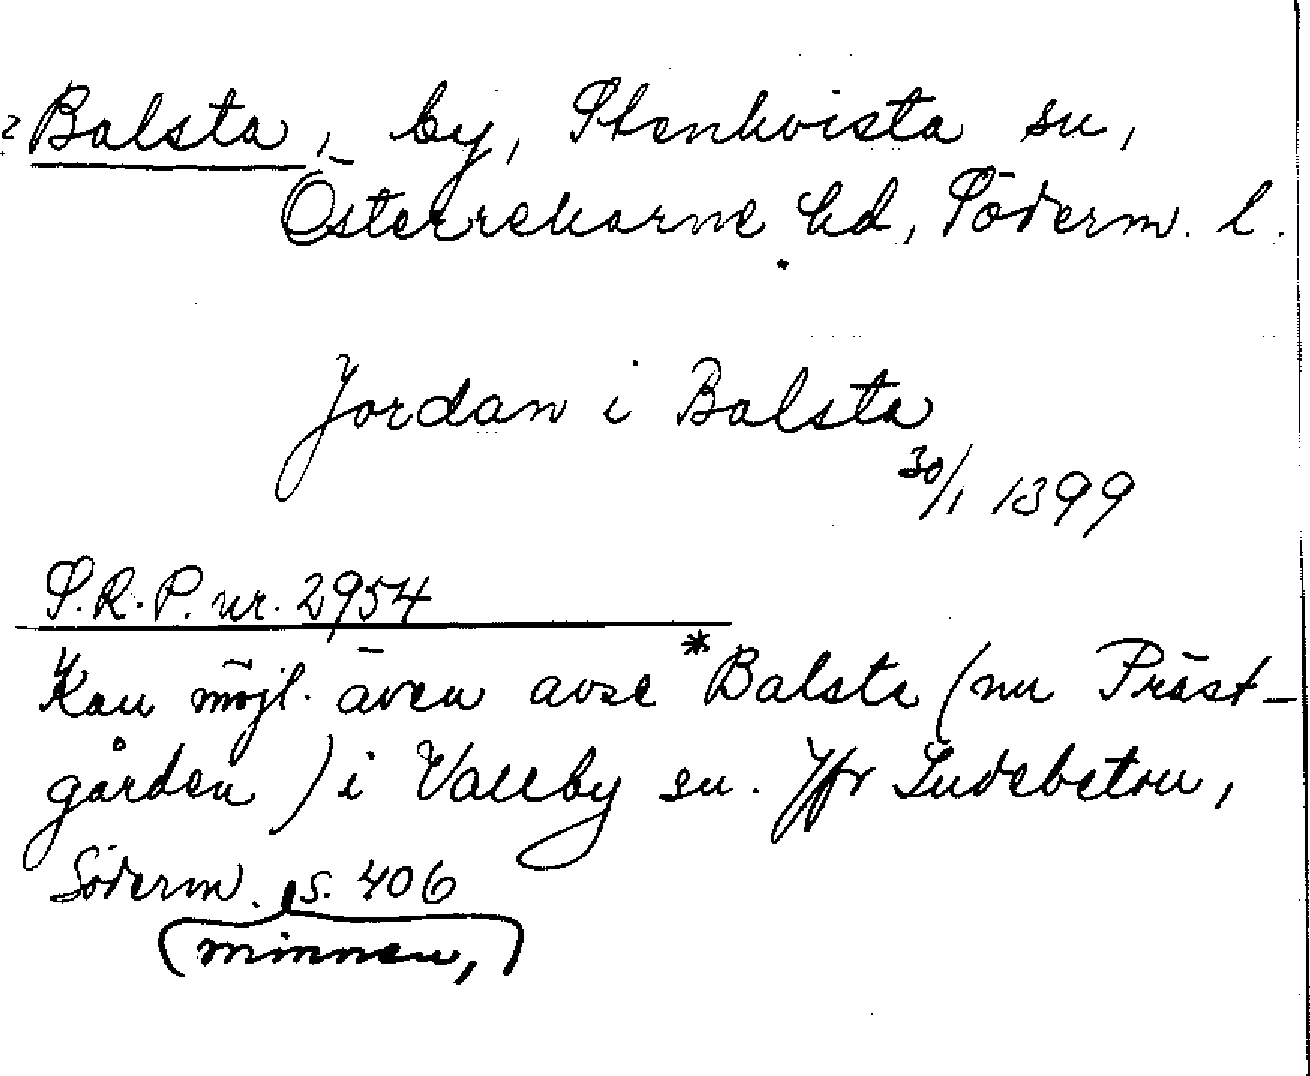 ? Balsta, by, Stenkvista sn,
Österrekarne hd, Söderm. l.
Jordan i Balsta
30/1 1399
S.R.P. nr. 2954
Kan möjl. även avse *Balsta (nu Präst-
gården) i Vallby sn. Jfr Indebetou,
Söderm. s. 406
(minnen,)